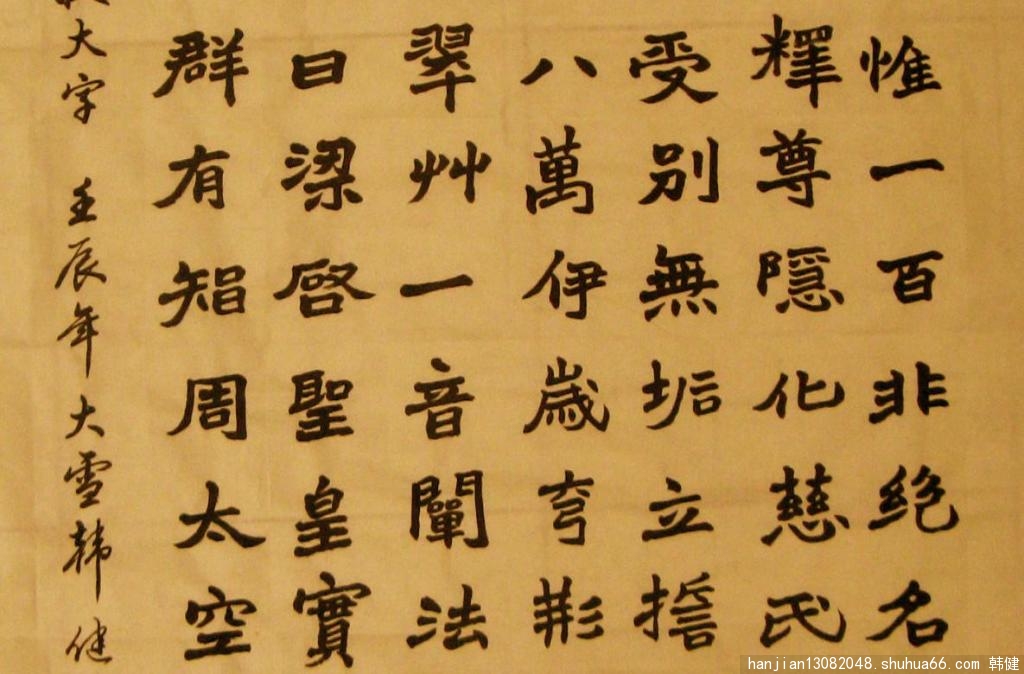 惟一百非绝名
釋尊隱化慈氏
受別無垢立
八萬伊歲
翠艸一音闡法
日梁啓聖皇實
群有智周太空
大字 壬辰年大雪韩健
hanjian13082048.shuhua66.com 韩健